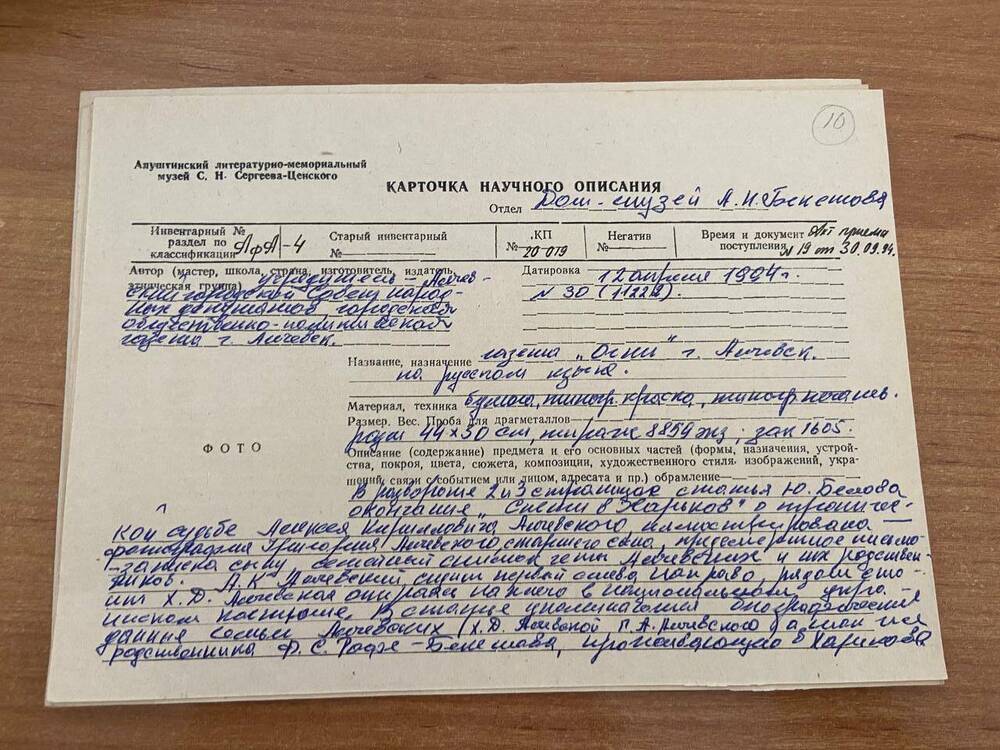 10
Алуштинский литературно-мемориальный
музей С. Н. Сергеева-Ценского
КАРТОЧКА НАУЧНОГО ОПИСАНИЯ
Отдел Дом-музей А.Н. Бекетова
Инвентарный №
раздел по
классификации АфА-4
Старый инвентарный
№
КП
№ 20-019
Негатив
№
Время и документ Акт приема
поступления № 19 от 30.09.94.
Автор (мастер, школа, страна, изготовитель, издатель,
этническая группа) учредитель - Алчев-
ский городской Совет народ-
ных депутатов, городская
общественно-политическая
газета г. Алчевск.
Датировка 12 апреля 1994 г.
№ 30 (11222).
Название, назначение газета „Огни" г. Алчевск.
на русском языке.
Материал, техника бумага, типогр. краска, типогр. печать.
Размер. Вес. Проба для драгметаллов
разм 44х30 см, тираж 8859 экз; зак 1605.
Описание (содержание) предмета и его основных частей (формы, назначения, устрой-
ства, покроя, цвета, сюжета, композиции, художественного стиля, изображений, укра-
шений, связи с событием или лицом, адресата и пр.) обрамление
ФОТО
В развороте 2 и 3 страницах статья Ю. Белова
окончание в Харьков" о трагичес-
кой судьбе Алексея Кирилловича Алчевского, иллюстрирована
фотография Григория Алчевского старшего сына, предсмертное письмо-
записка сыну семейный снимок четы Алчевских и их родствен-
ников. А.К. Алчевский сидит первый слева направо, рядом сто-
ит Х.Д. Алчевская опираясь на него в национальном укра-
инском костюме. В статье упоминаются биографические
данные семьи Алчевских (Х.Д. Алчевской Г.А. Алчевского а также
родственника Ф.С. Рофе-Бекетова, проживающего в Харькове